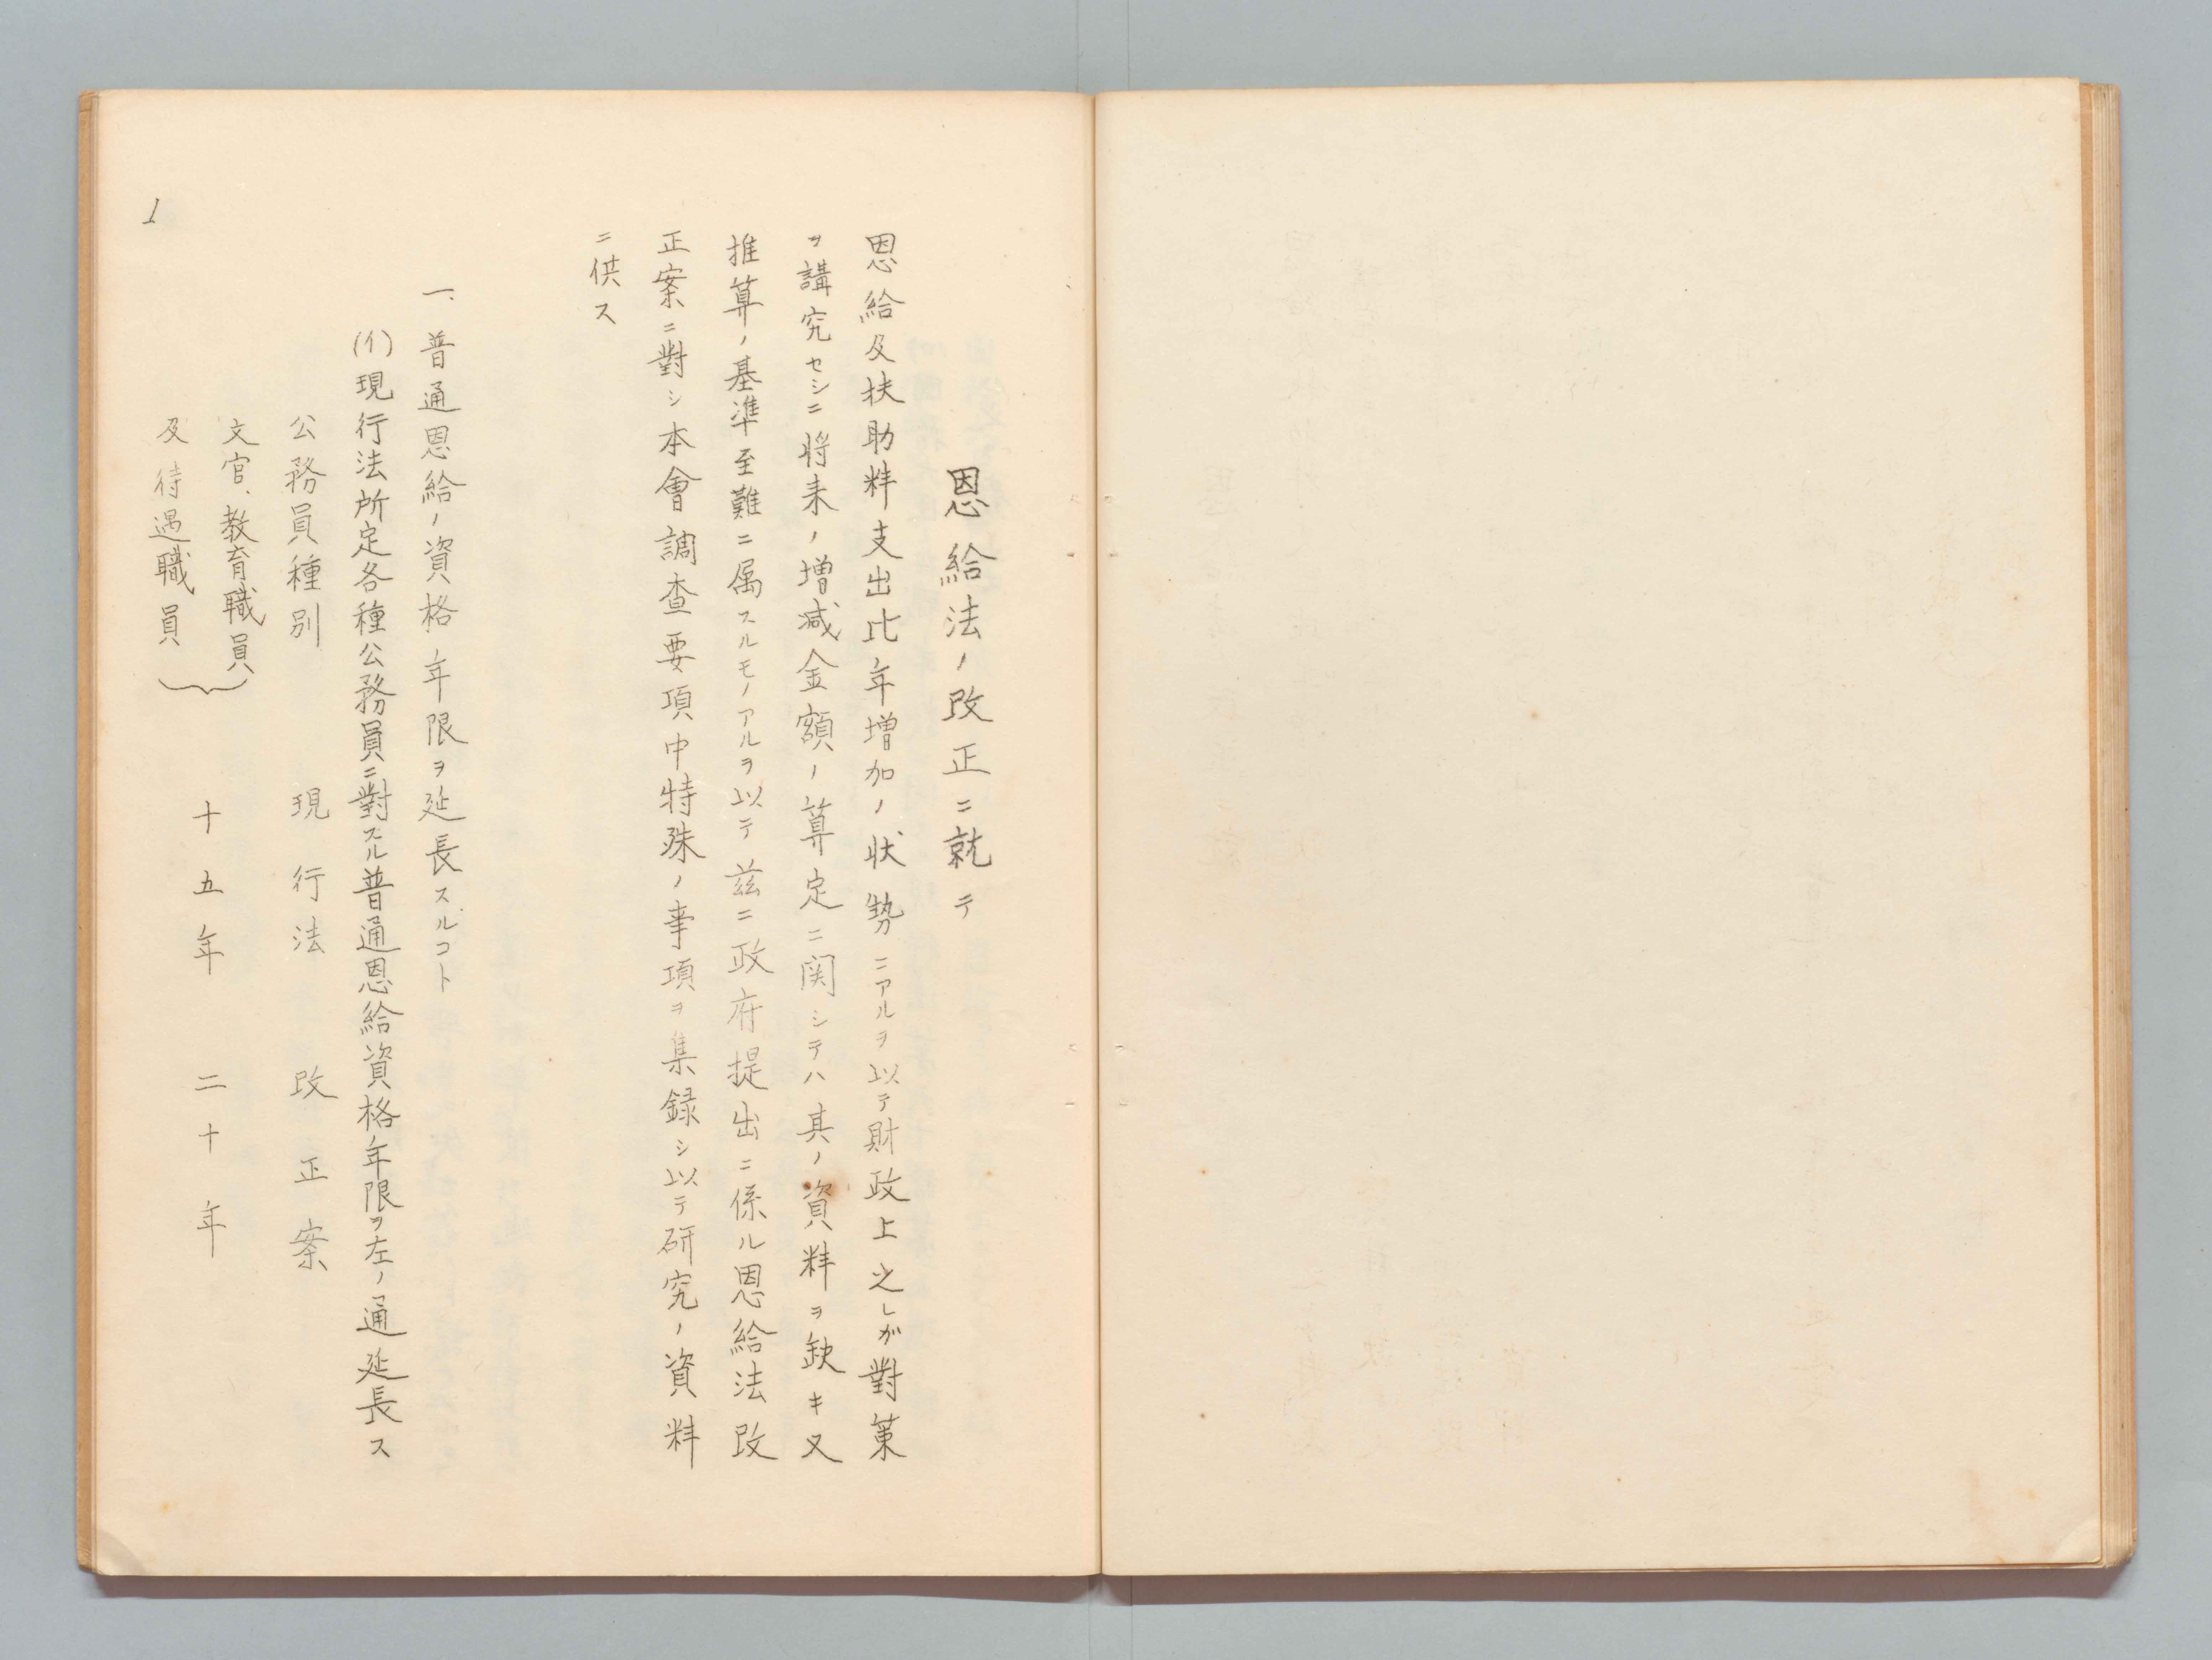 恩給法ノ改正ニ就テ
恩給及扶助料支出比年増加ノ状勢ニアルヲ以テ財政上之レガ對策
ヲ講究セシニ将来ノ増減金額ノ算定ニ関シテハ其ノ資料ヲ缺キ又
推算ノ基準至難ニ属スルモノアルヲ以テ茲ニ政府提出ニ係ル恩給法改
正案ニ對シ本會調査要項中特殊ノ事項ヲ集録シ以テ研究ノ資料
ニ供ス
一、普通恩給ノ資格ノ年限ヲ延長スルコト
(イ)現行法所定各種公務員ニ對スル普通恩給資格年限ヲ左ノ通延長ス
公務員種別 現行法 改正案
文官、教育職員
及待遇職員 十五年 二十年
1